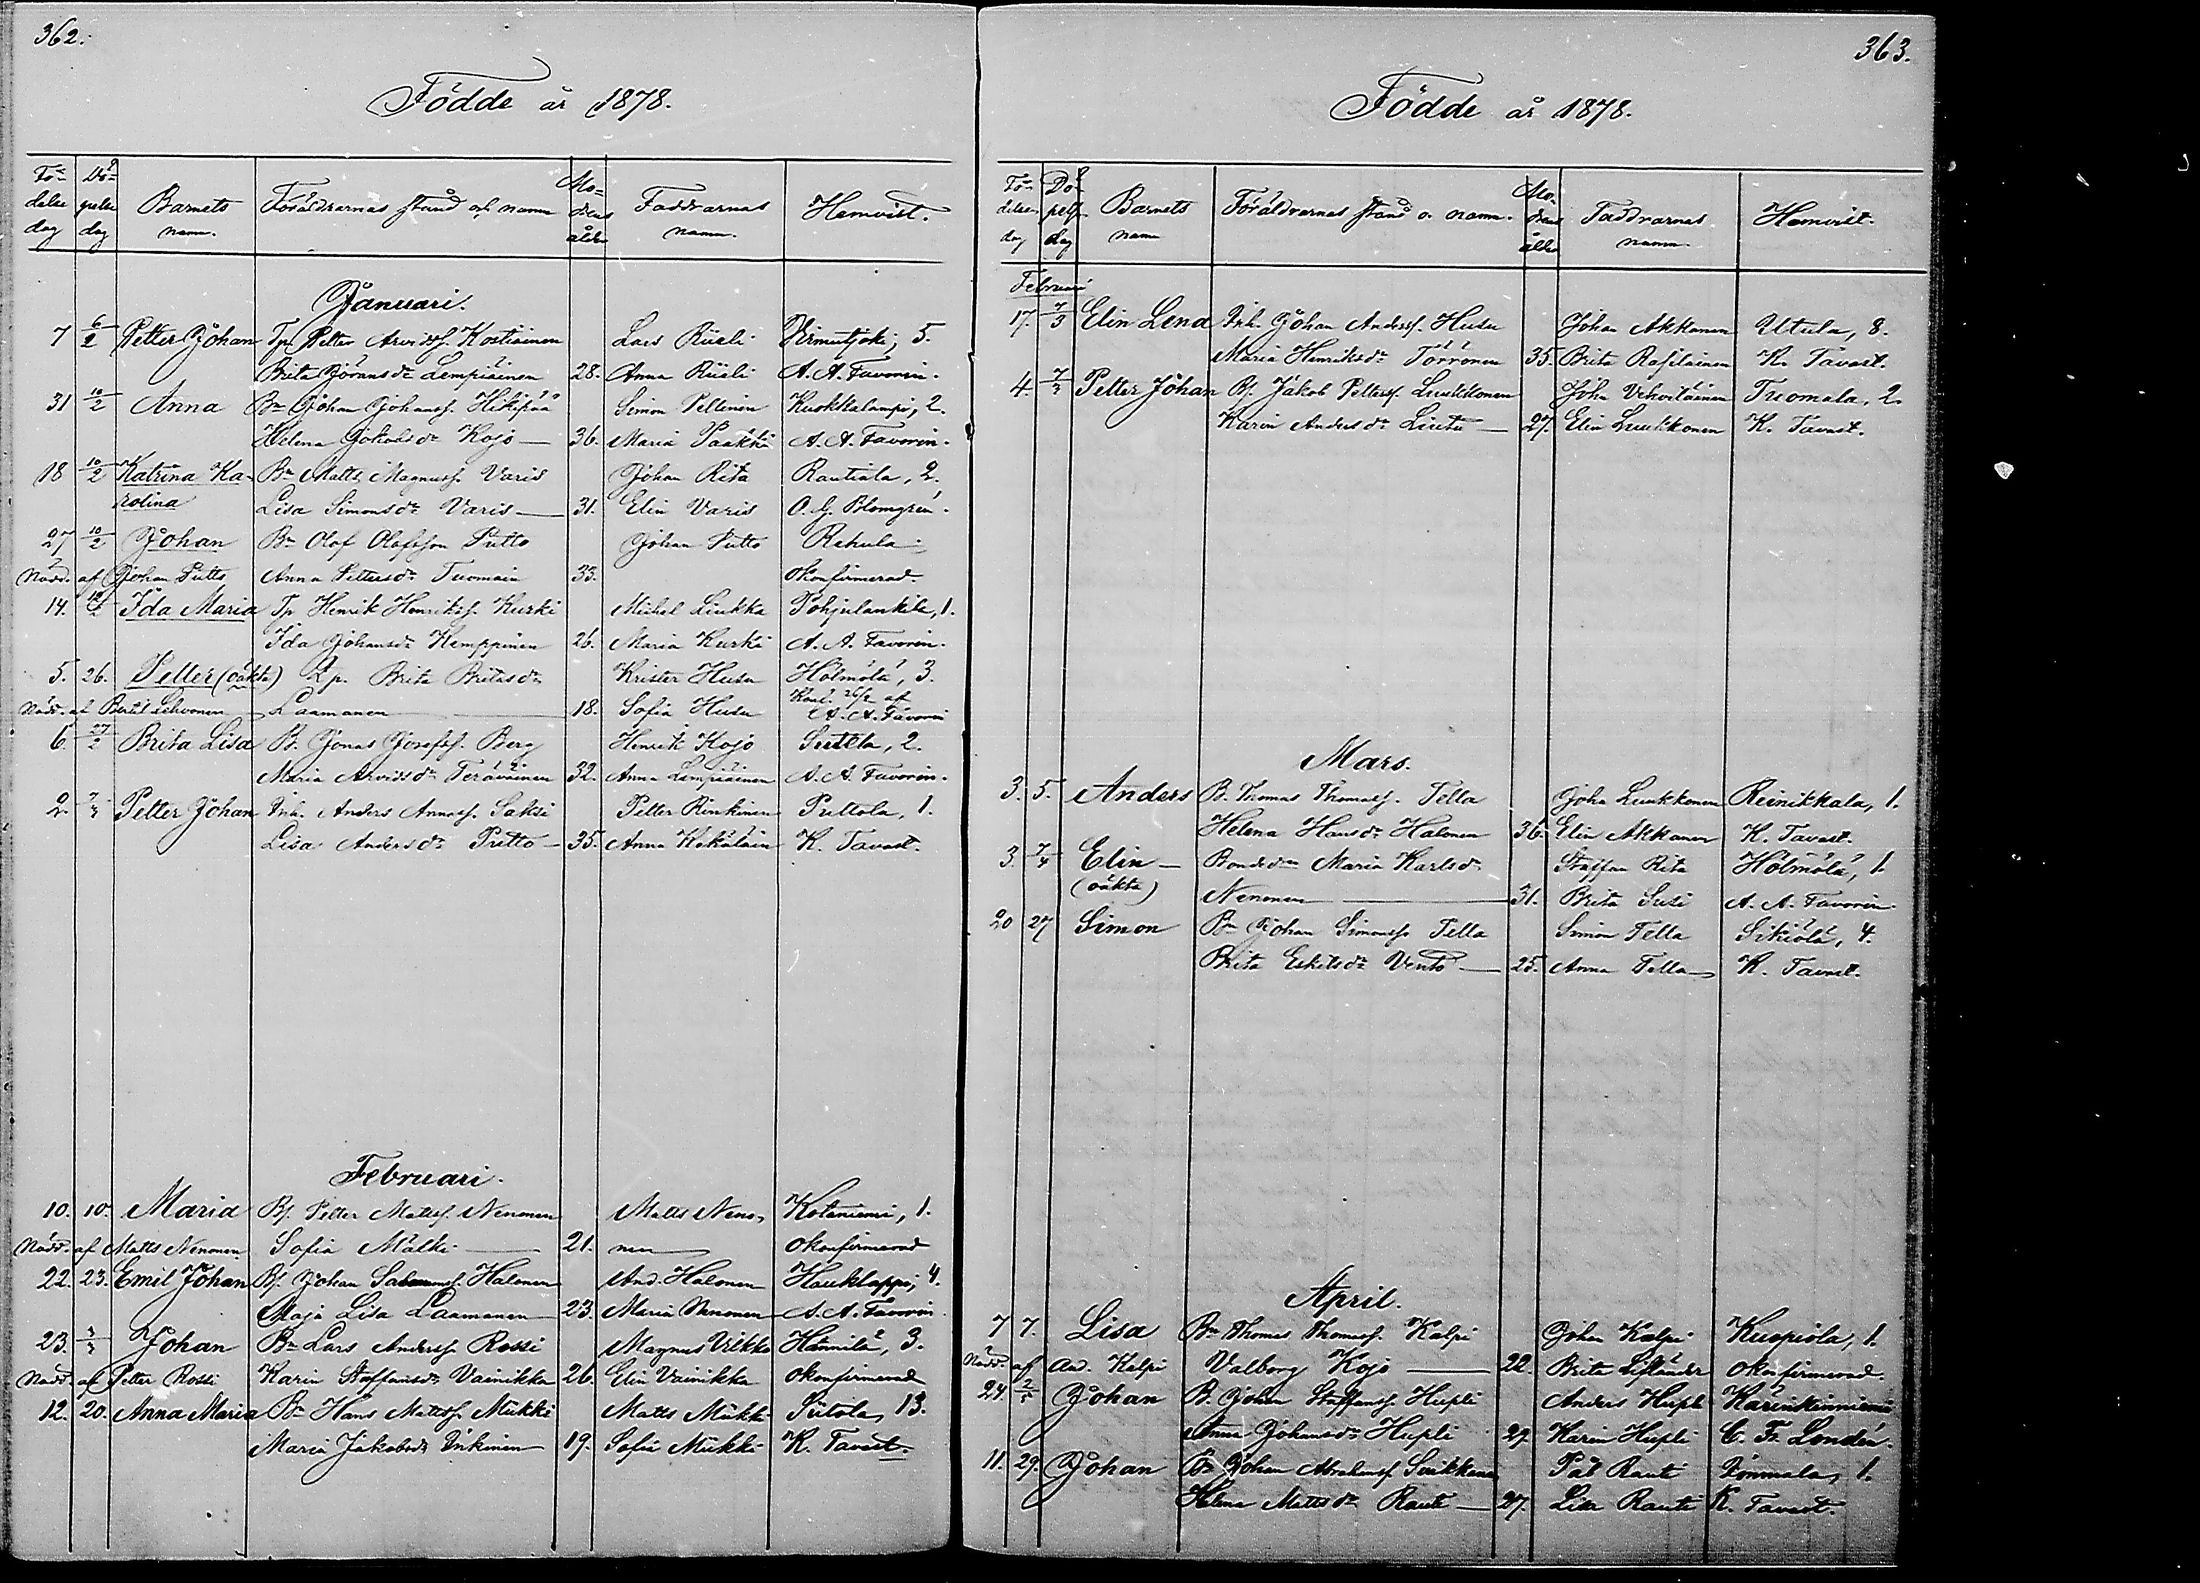 362.
Födde år 1878.
Fö= delse dag
Dö= pelse dag
Barnets namn.
Föräldrarnas stånd och namn
Mo= drens ålder
Faddrarnas namn.
Hemvist.
Januari.
7 6/2 Petter Johan Tp Petter Arvidsf. Kostiainen Lars Rüsli Kirmutjoki, 5.
Brita Göransdr Lempiäinen 28. Anna Rüsli A. A. Favorin.
31 10/2 Anna Bn Johan Johansf. Hikipää Simon Pellinen Kuokkalampi, 2.
Helena Jakobsdr Kojo 36. Maria Paakki A. A. Favorin.
18 10/2 Katrina Ka- Bn Matts Magnusf. Varis Johan Rita Rautiala, 2.
rolina Lisa Simonsdr Varis 31. Elin Varis O. G. Blomgren.
27 10/2 Johan Bn Olof Olofsson Putto Johan Putto Rahula
Nödd. af Johan Putto Anna Pettersdr Tuomain 33. okonfirmerad.
14. Ida Maria Tp Henrik Henriksf. Kurki Mickel Liukka Pohjalankila, 1.
Ida Johansdr Kemppinen 26. Maria Kurki A. A. Favorin.
5. 26. Petter (oäkta) Lp. Brita Britasdr Krister Husu Hölmölä, 3.
Nödd. af Bertil Lehvonen Laamanen 18. Sofia Husu Konf. 26/2 af A. A. Favorin
6. 27/2 Brita Lisa B. Jonas Josefsf. Berg Henrik Kojo Suttela, 2.
Maria Arvidsdr Teräväinen 32. Anna Lempiäinen A. A. Favorin.
2. 7/3 Petter Johan Inh. Anders Annasf. Saksi Petter Rinkinen Puttola, 1.
Lisa Andersdr Putto 35. Anna Kekäläin K. Tavast.
Februari.
10. 10. Maria Bf. Petter Mattsf. Nenonen Matts Neno- Kotaniemi, 1.
Nödd. af Matts Nenonen Sofia Mälki 21. nen okonfirmerad
22. 23. Emil Johan Bf. Johan Halonen And. Halonen Hauklappi, 4.
Maja Lisa Laamanen 23. Maria Nenonen A. A. Favorin.
23. 3/3 Johan Bn Lars Andersf. Rossi Magnus Vilkko Hännilä, 3.
Nödd. af Petter Rossi Karin Staffansdr Vainikka 26. Elin Vainikka okonfirmerad
12. 20. Anna Maria Bn Hans Mattsf. Mükki Matts Mükki Sütola, 13.
Maria Jakobsdr Inkinen 19. Sofia Mükki K. Tavast.
363.
Födde år 1878.
Fö- delse- dag
Dö- pelse dag
Barnets namn
Föräldrarnas stånd o. namn.
Mo- drens ålder
Faddrarnas namn.
Hemvist.
Februari
17. 7/3 Elin Lena Inh. Johan Andersf. Husu Johan Akkanen Utula, 8.
Maria Henriksdr Törrönen 35. Brita Rasilainen K. Tavast.
4. 7/3 Petter Johan Bf. Jakob Pettersf. Luukkonen Johan Vehviläinen Tuomala, 2.
Karin Andersdr Liutu 27. Elin Luukkonen K. Tavast.
Mars.
3. 5. Anders B. Thomas Thomasf. Tella Johan Luukkonen Reinikkala, 1.
Helena Hansdr Halonen 36. Elin Akkanen K. Tavast.
3. 7/4 Elin Bondedn Maria Karlsdr Staffan Rita Hölmölä, 1.
(oäkta) Nenonen 31. Brita Susi A. A. Favorin.
20 27 Simon Bn Johan Simonsf. Tella Simon Tella Sikiölä, 4.
Brita Eskilsdr Vento 25. Anna Tella K. Tavast.
April.
7 7. Lisa Bn Thomas Thomasf. Kalpi Johan Kalpi Kuopiola, 1.
Nödd. af And. Kalpi Valborg Kojo 22. Brita Liflander okonfirmerad.
24 2/5 Johan B. Johan Staffansf. Hupli Anders Hupli
Anna Johansdr Hupli 29 Karin Hupli C. Fr. Londén.
11. 29. Johan Bn Johan Abrahamsf. Suikkanen Pål Rauti 1.
Helena Mattsdr Rauti 27. Lisa Rauti K. Tavast.